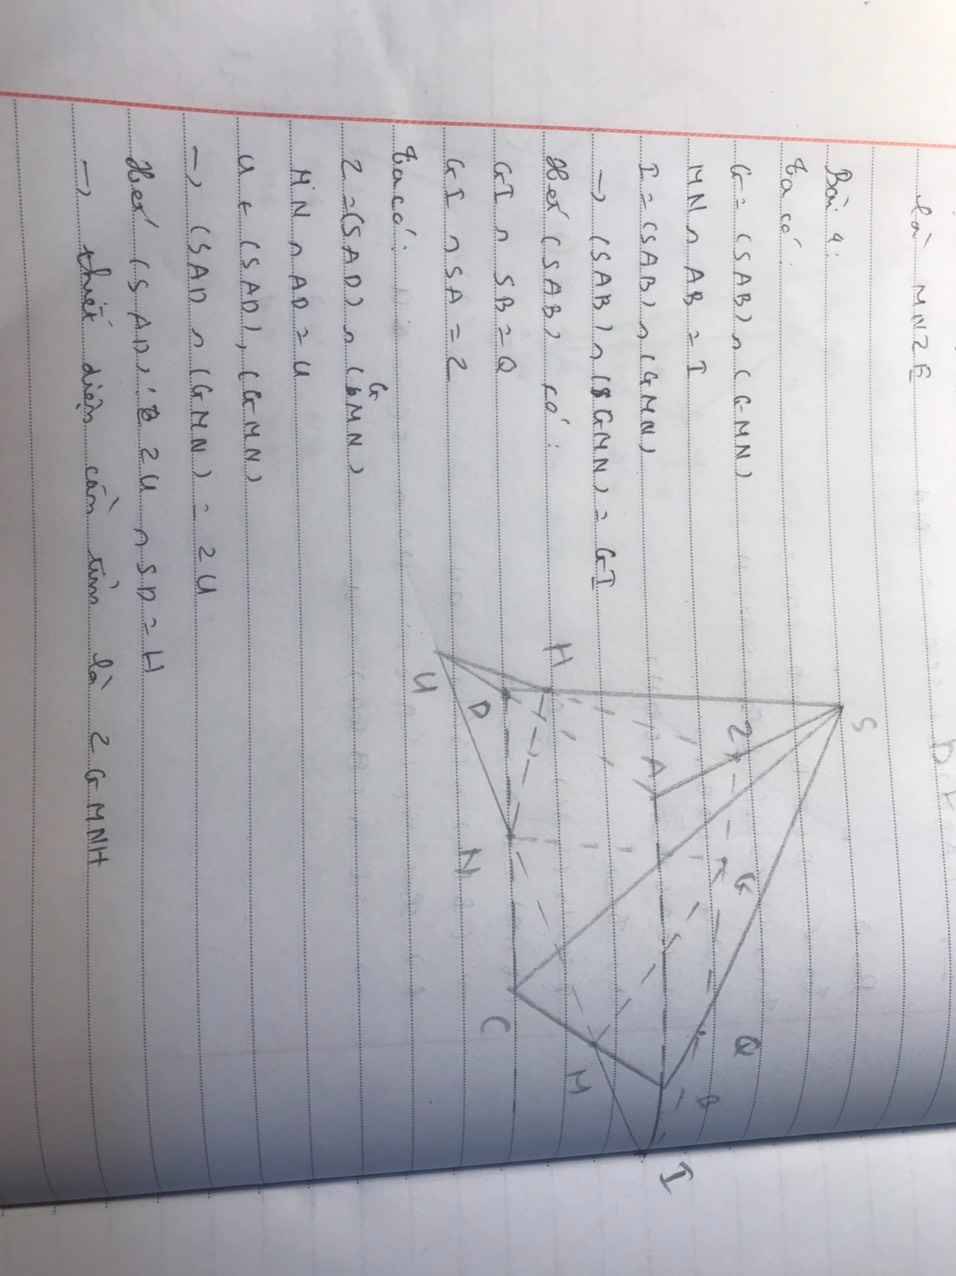 là MNZE
Bài 4:
Ta có:
G = (SAB) ∩ (GMN)
MN ∩ AB = I
I = (SAB) ∩ (GMN)
→ (SAB) ∩ (GMN) = GI
Xét (SAB) có:
GI ∩ SB = Q
GI ∩ SA = Z
Ta có:
Z = (SAD) ∩ (GMN)
MN ∩ AD = U
U + (SAD), (GMN)
→ (SAD ∩ (GMN) = ZU
Xét (SAD): ZU ∩ SD = H
→ thiết diện cần tìm là ZGMNH
S
H
U
D
Z
A
G
N
C
Q
M
B
I